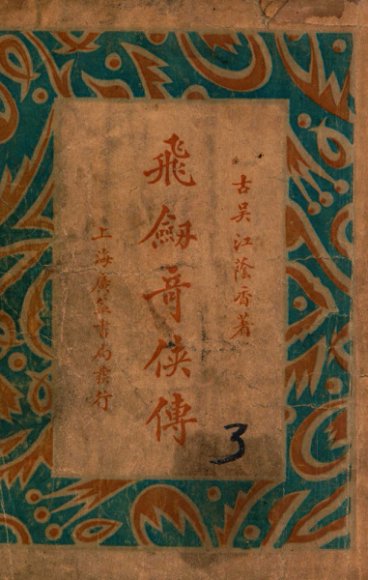 古吳江蔭香著
飛劔竒俠傳
上海廣益書局發行
3